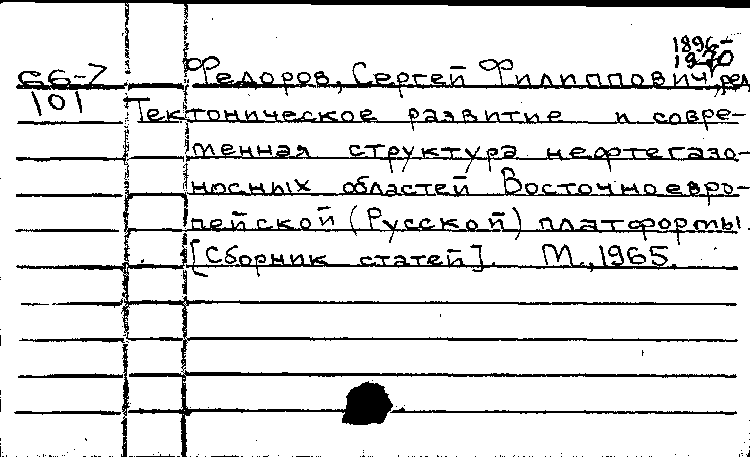 1896-
1970
G6-7 Федоров, Сергей Филиппович, ред.
101 Тектоническое развитие и совре-
менная структура нефтегазо-
носных областей Восточноевро-
пейской (Русской) платформы.
[Сборник статей]. М., 1965.